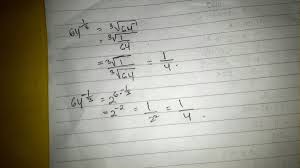 64^(-1/3) = ∛(64^-1)
= ∛(1/64)
= ∛1/∛64 = 1/4.
64^(-1/3) = 2^(6·-1/3)
= 2^-2 = 1/2² = 1/4.